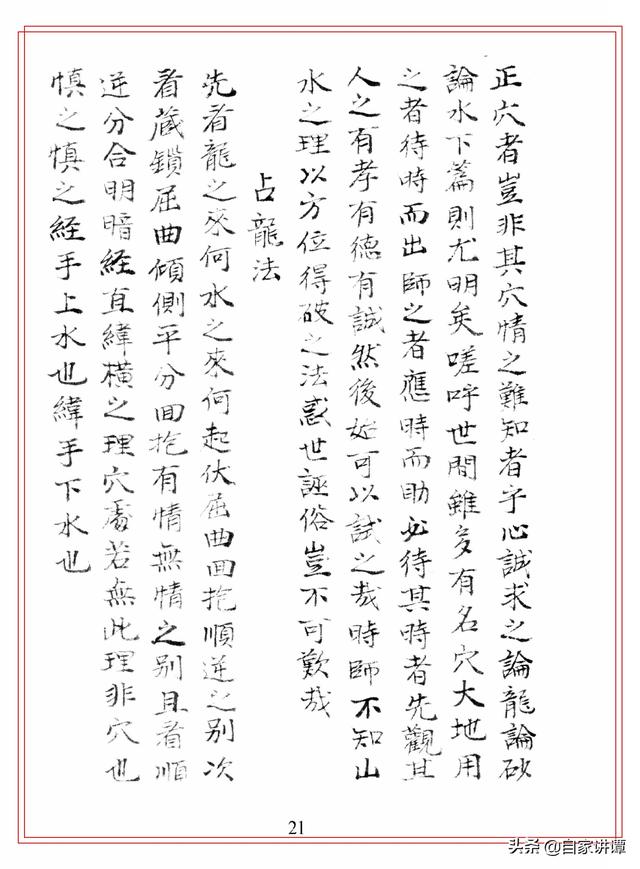 正穴者豈非其穴情之難知者乎心誠求之論龍論砂
論水下篇則尤明矣嗟呼世間雖多有名穴大地用
之者待時而出師之者應時而助必待其時者先觀其
人之有孝有德有誠然後始可以試之哉時師不知山
水之理以方位得破之法惑世誣俗豈不可歎哉
占龍法
先看龍之來何水之來何起伏屈曲回抱順逆之別次
看藏鎖屈曲傾側平分回抱有情無情之別且看順
逆分合明暗経直緯橫之理穴處若無此理非穴也
慎之慎之経手上水也緯手下水也
21
头条 @自家讲谭